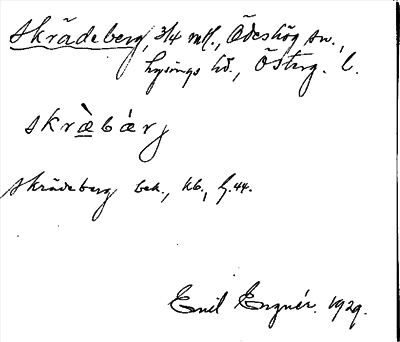 Skrädeberg, 3/4 mtl., Ödeshög sn.,
Lysings hd., Österg. l.
skræ̀bárj
Skrädeberg bek., kb., h. 44.
Emil Engnér. 1929.